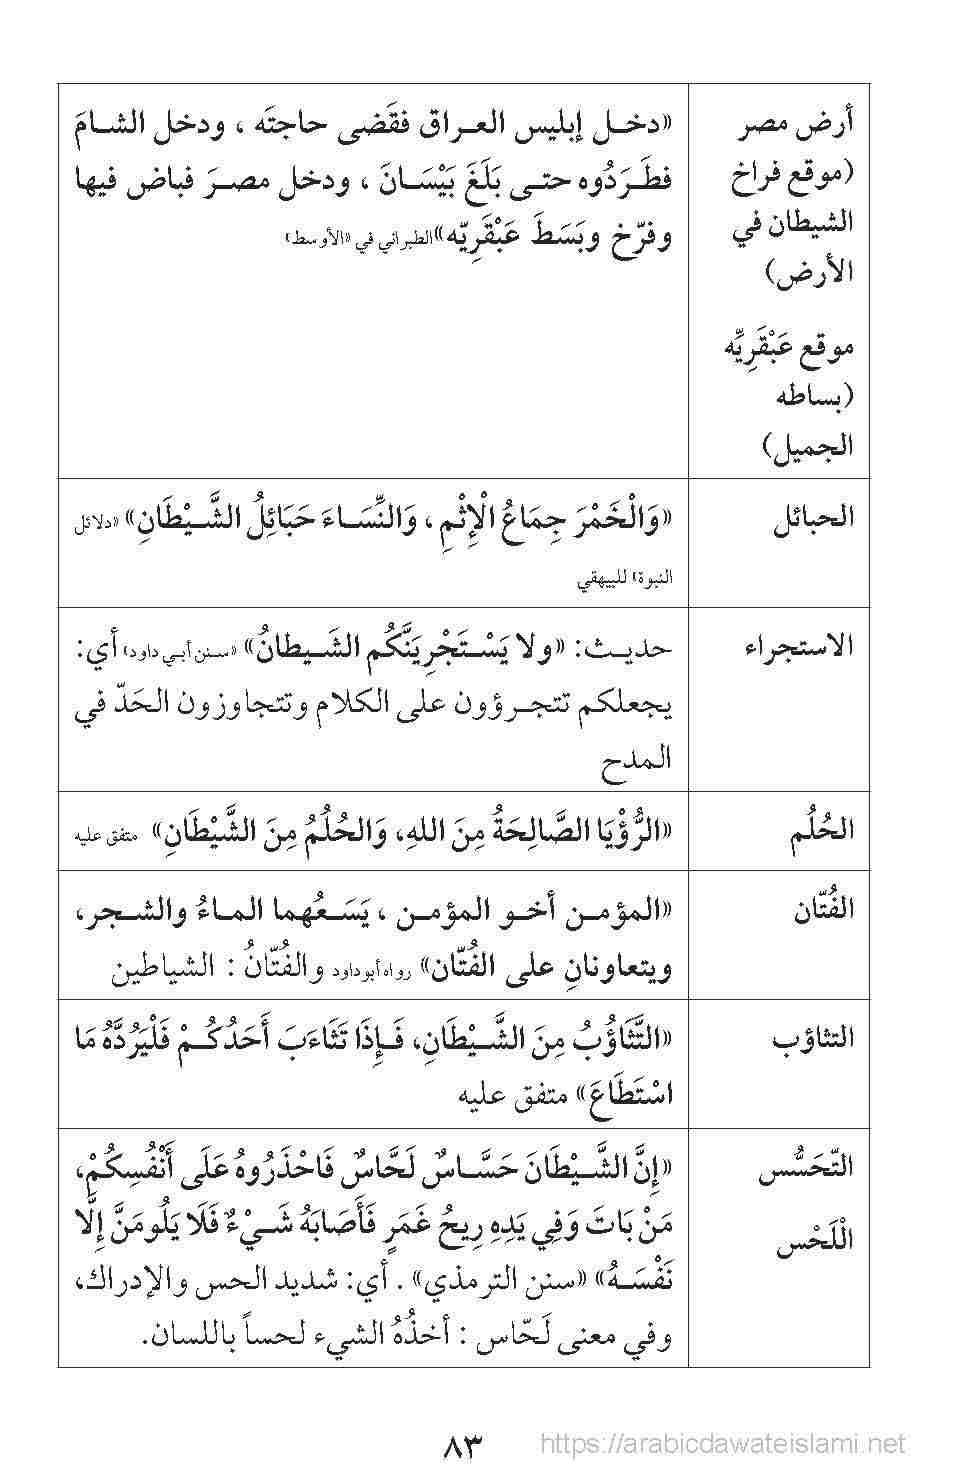 أرض مصر
(موقع فراخ
الشيطان في
الأرض)
موقع عَبْقَرِيِّه
(بساطه
الجميل)
«دخل إبليس العراق فقَضى حاجتَه ، ودخل الشامَ
فطَرَدُوه حتى بَلَغَ بَيْسَانَ ، ودخل مصرَ فباض فيها
وفرّخ وبَسَطَ عَبْقَرِيّه» الطبراني في «الأوسط»
الحبائل
«وَالْخَمْرَ جِمَاعُ الْإِثْمِ ، وَالنِّسَاءَ حَبَائِلُ الشَّيْطَانِ» «دلائل
النبوة» للبيهقي
الاستجراء
حديث: «ولا يَسْتَجْرِيَنَّكُم الشَيطانُ» «سنن أبي داود» أي:
يجعلكم تتجرؤون على الكلام وتتجاوزون الحَدّ في
المدح
الحُلُم
«الرُّؤْيَا الصَّالِحَةُ مِنَ اللهِ، وَالحُلُمُ مِنَ الشَّيْطَانِ» متفق عليه
الفُتّان
«المؤمن أخو المؤمن ، يَسَعُهما الماءُ والشجر،
ويتعاونانِ على الفُتّان» رواه أبو داود والفُتّانُ : الشياطين
التثاؤب
«التَّثَاؤُبُ مِنَ الشَّيْطَانِ، فَإِذَا تَثَاءَبَ أَحَدُكُمْ فَلْيَرُدَّهُ مَا
اسْتَطَاعَ» متفق عليه
التّحَسُّس
الْلَحْس
«إِنَّ الشَّيْطَانَ حَسَّاسٌ لَحَّاسٌ فَاحْذَرُوهُ عَلَى أَنْفُسِكُمْ،
مَنْ بَاتَ وَفِي يَدِهِ رِيحُ غَمَرٍ فَأَصَابَهُ شَيْءٌ فَلَا يَلُومَنَّ إِلَّا
نَفْسَهُ» «سنن الترمذي» . أي: شديد الحس والإدراك،
وفي معنى لَحّاس : أخذُهُ الشيء لحساً باللسان.
٨٣
https://arabicdawateislami.net